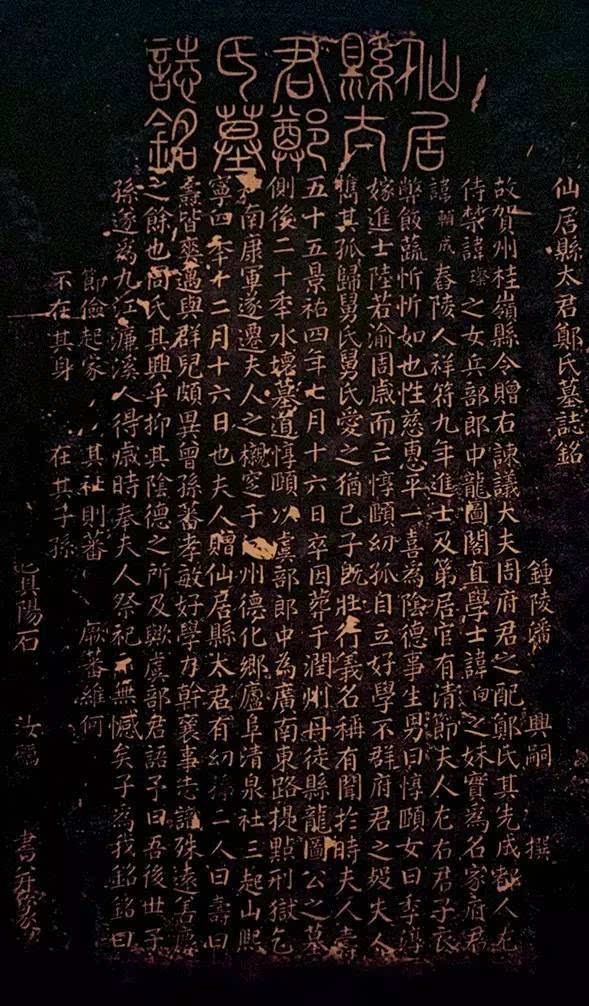 仙居縣太
君鄭氏墓
誌銘
仙居縣太君鄭氏墓誌銘
鍾陵潘 興嗣 撰
故賀州桂嶺縣令贈右諫議大夫周府君之配鄭氏其先成都人左
侍禁諱璨之女兵部郎中龍圖閣直學士諱向之妹實為名家府君
諱輔成舂陵人祥符九年進士及第居官有清節夫人左右君子衣
弊飯蔬忻忻如也性慈惠平一喜為陰德事生男曰惇頤女曰季淳
嫁進士陸若渝周歲而亡惇頤幼孤自立好學不群府君之歿夫人
攜其孤歸舅氏舅氏愛之猶己子既壯行義名稱有聞於時夫人壽
五十五景祐四年七月十六日卒因葬于潤州丹徒縣龍圖公之墓
側後二十年水壞墓道惇頤以虞部郎中為廣南東路提點刑獄乞
南康軍遂遷夫人之櫬窆于州德化鄉廬阜清泉社三起山熙
寧四年十二月十六日也夫人贈仙居縣太君有幼孫二人曰壽曰
燾皆爽邁與群兒頗異曾孫蕃孝敏好學力幹襄事走殊遠善慶
之餘也周氏其興乎抑其陰德之所及歟虞部君語予曰吾後世子
孫遂為九江濂溪人得歲時奉夫人祭祀無憾矣子為我銘銘曰
節儉起家 其社則蕃 厥蕃維何
不在其身 在其子孫
陽石 汝礪 書